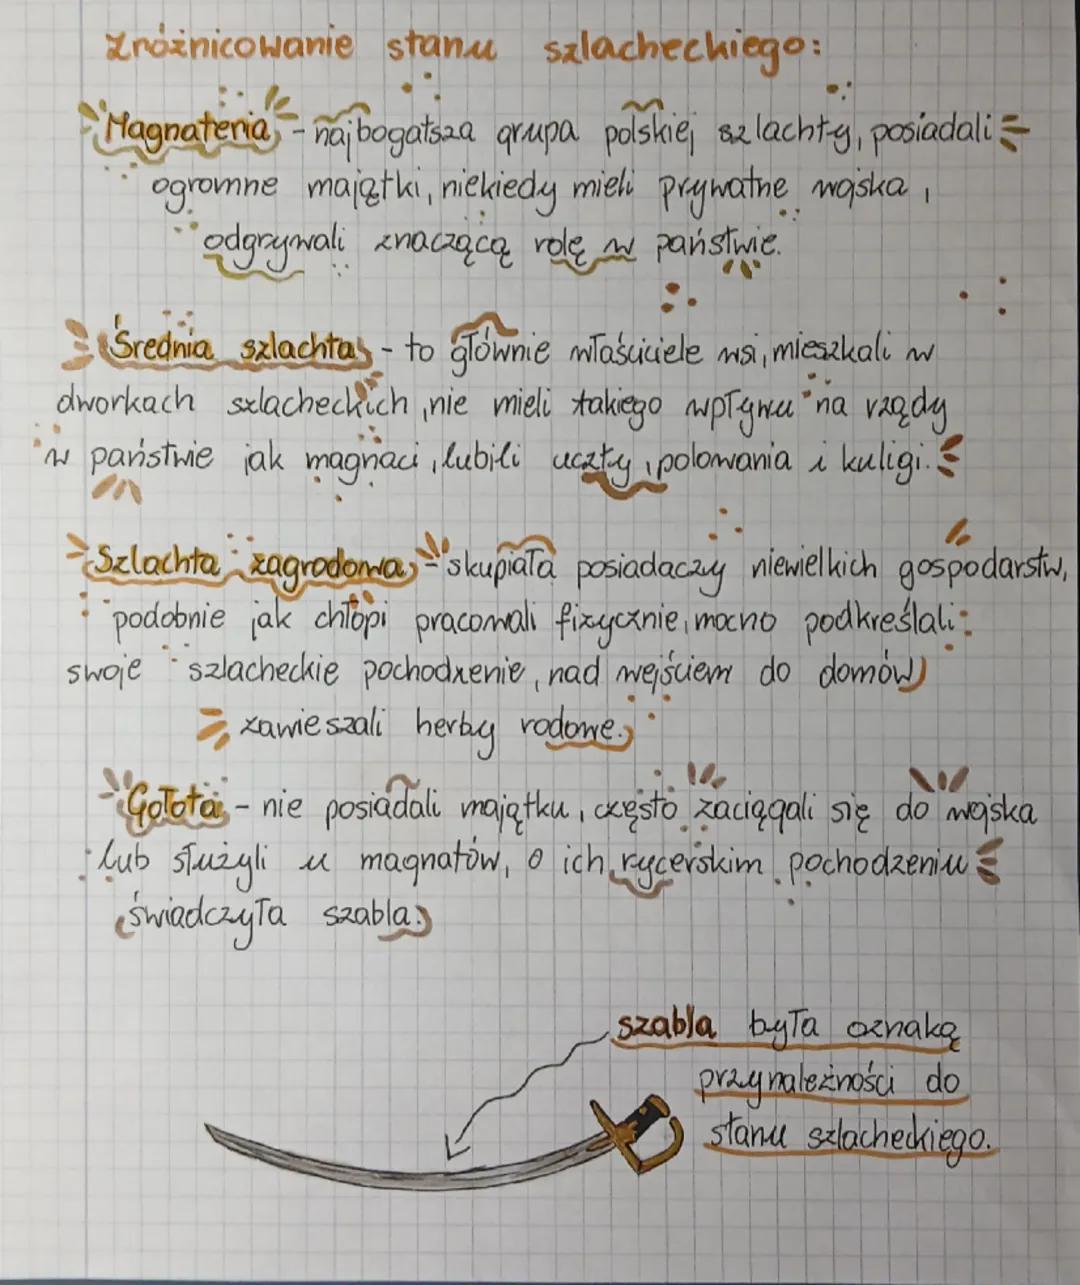 Zróżnicowanie stanu szlacheckiego:
Magnateria - najbogatsza grupa polskiej szlachty, posiadali
ogromne majątki, niekiedy mieli prywatne wojska,
odgrywali znaczącą rolę w państwie.
Średnia szlachta - to głównie właściciele wsi, mieszkali w
dworkach szlacheckich, nie mieli takiego wpływu na rządy
w państwie jak magnaci, lubili uczty, polowania i kuligi.
Szlachta zagrodowa - skupiała posiadaczy niewielkich gospodarstw,
podobnie jak chłopi pracowali fizycznie, mocno podkreślali
swoje szlacheckie pochodzenie, nad wejściem do domów
zawieszali herby rodowe.
Gołota - nie posiadali majątku, często zaciągali się do wojska
lub służyli u magnatów, o ich rycerskim pochodzeniu
świadczyła szabla.
szabla była oznaką
przynależności do
stanu szlacheckiego.